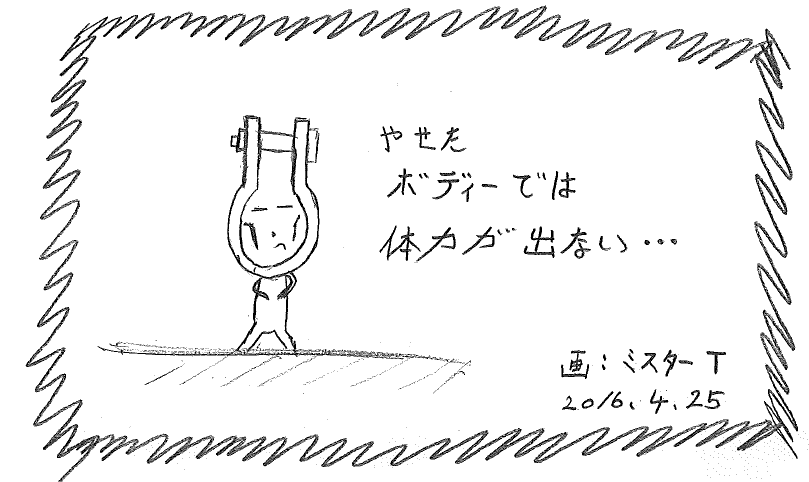 やせた
ボディーでは
体力が出ない…
画：ミスターT
2016.4.25